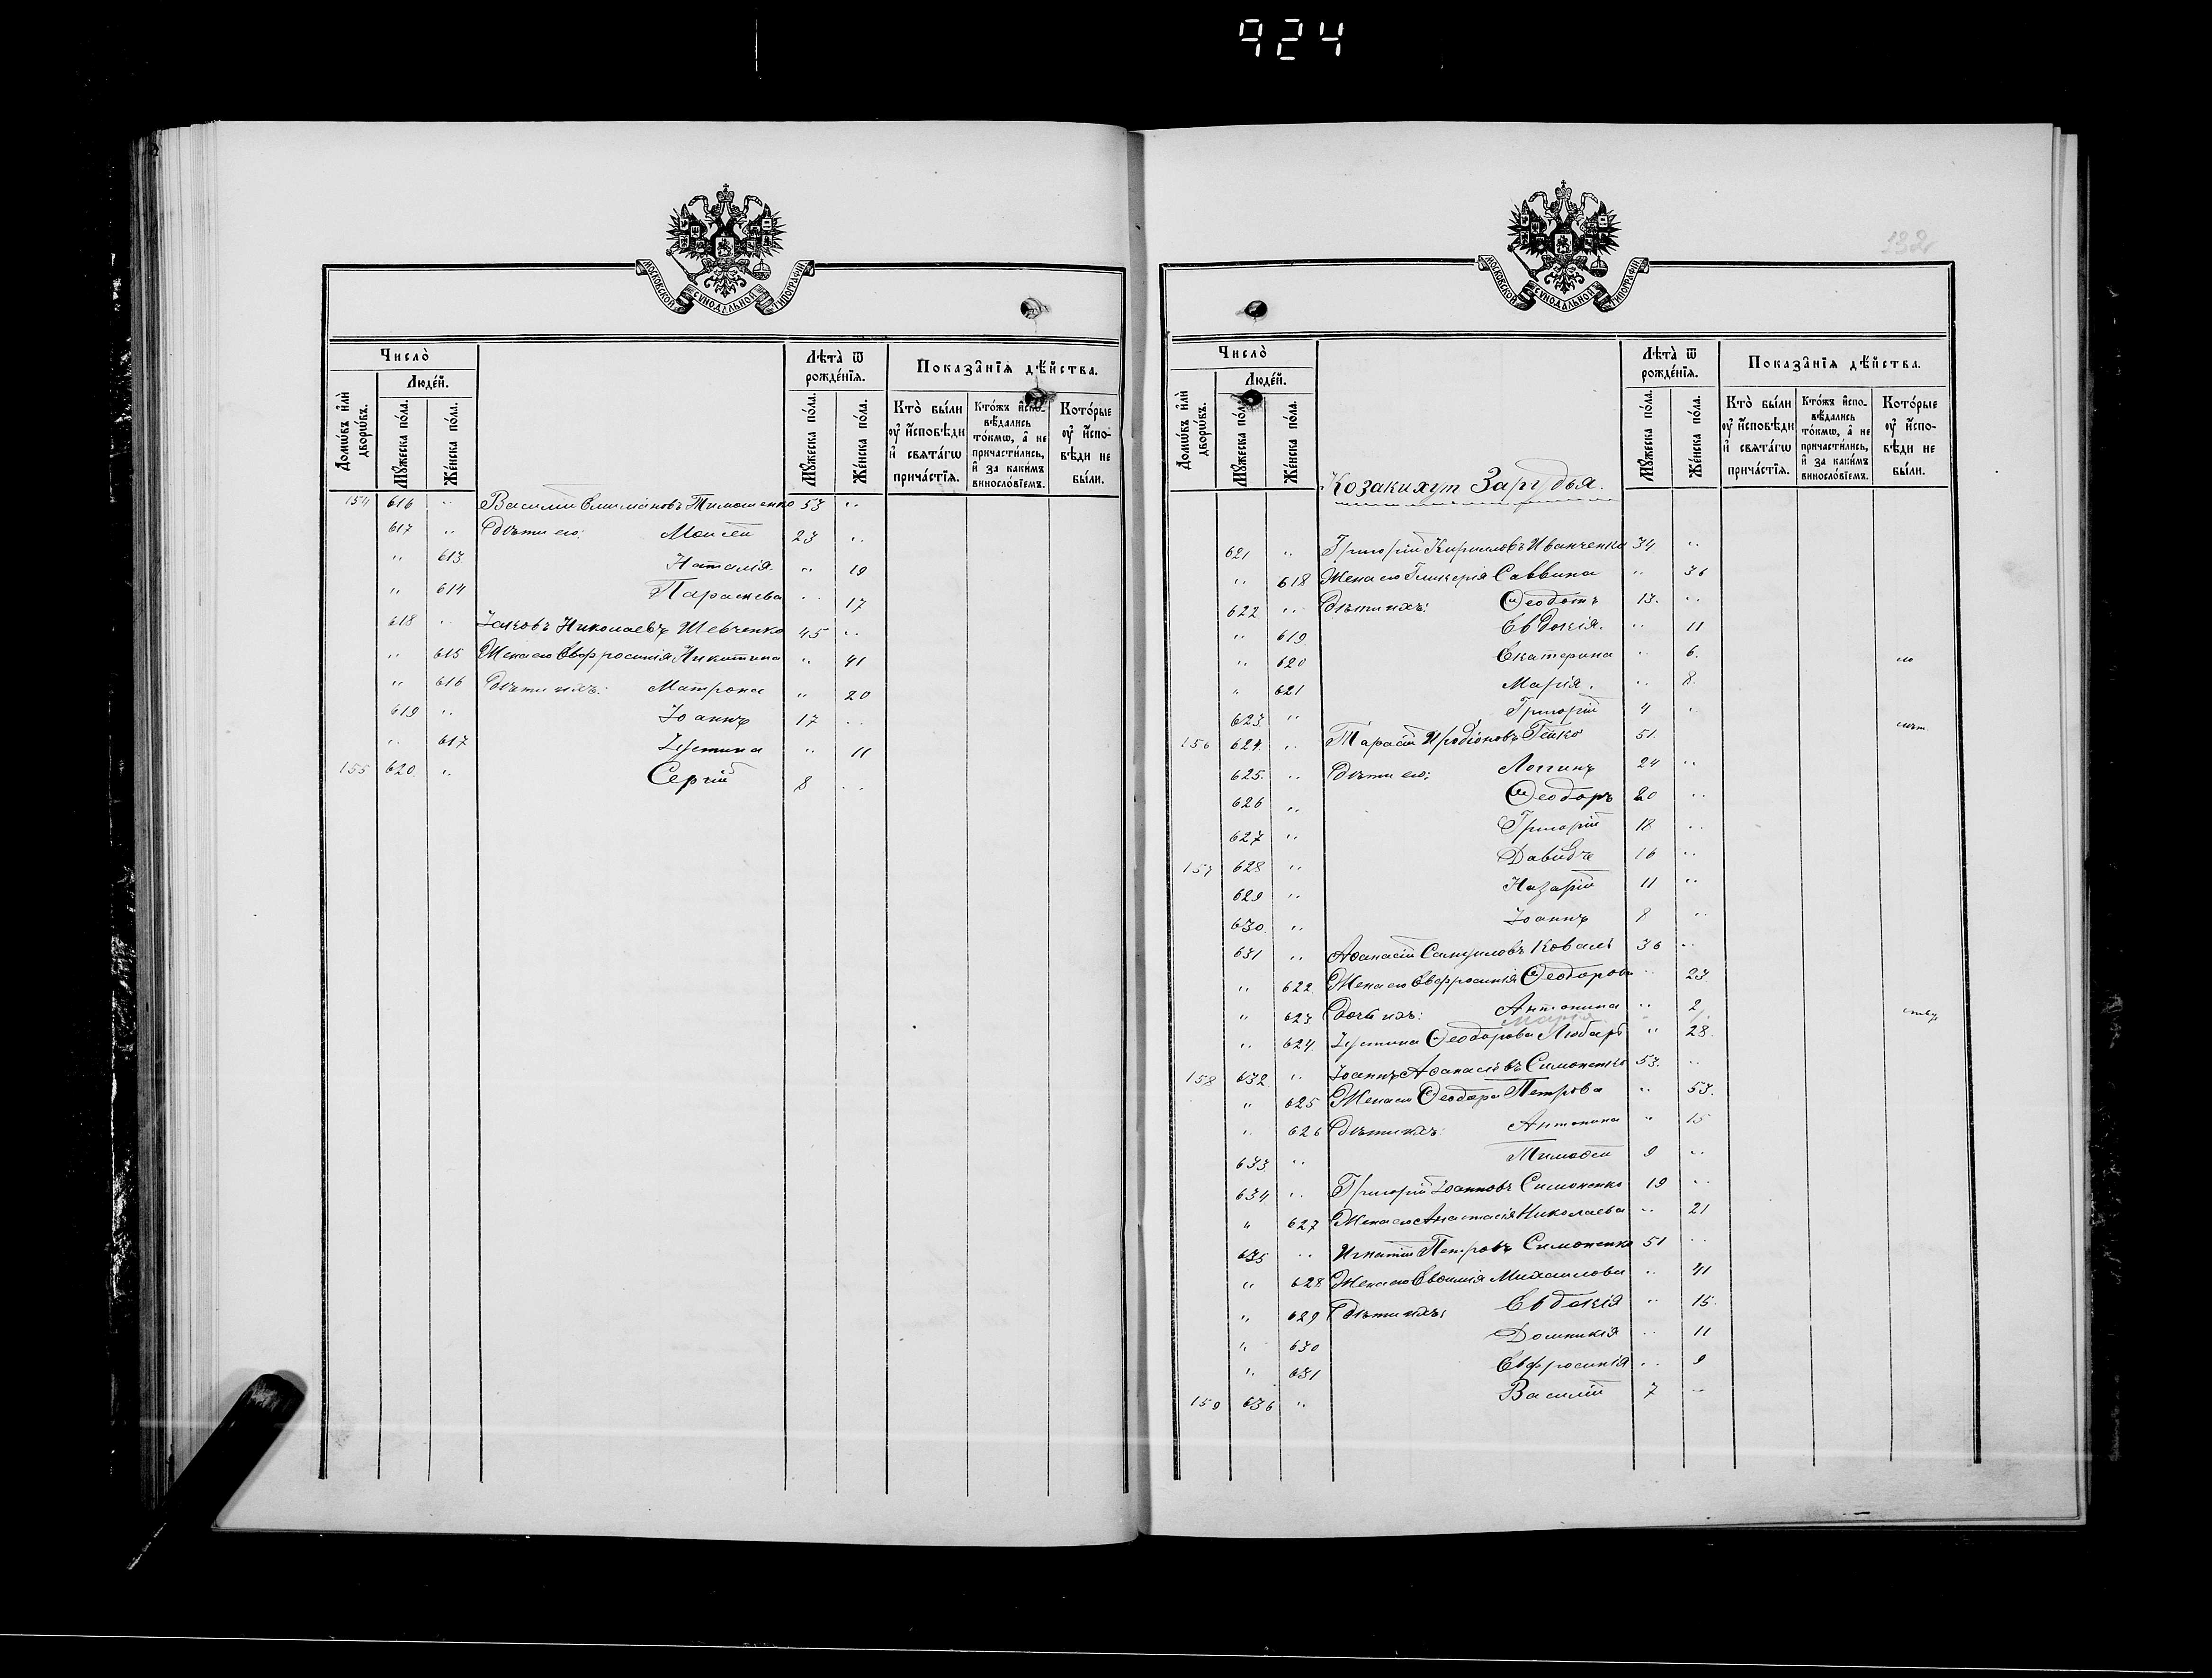 924
МОСКОВСКОЙ СѴНОДАЛЬНОЙ ТИПОГРАФІИ
Число̀
Домѡ́въ и҆лѝ дворѡ́въ.
Люде́й.
Мꙋ́жеска по́ла.
Же́нска по́ла.
Лѣта̀ ѿ рожде́нїѧ.
Мꙋ́жеска по́ла.
Же́нска по́ла.
Показа̑нїѧ дѣ́йства.
Кто̀ бы́ли ᲂу҆ и҆́сповѣди и҆ свѧта́гѡ прича́стїѧ.
Кто́жъ и҆спо-вѣ́дались то́кмѡ, а҆ не причасти́лись, и҆ за каки́мъ винослѡ́вїемъ.
Кото́рые ᲂу҆ и҆́спо-вѣди не бы́ли.
154 616 " Василій Климановъ Тимошенко 53 "
617 " Дѣти его: Моисей 23 "
" 613 Наталія " 19
" 614 Параскева " 17
618 " Іаковъ Николаевъ Шевченко 45 "
" 615 Жена его Евфросинія Никитина " 41
" 616 Дѣти ихъ: Матрона " 20
619 " Іоаннъ 17 "
" 617 Іустина " 11
155 620 " Сергій 8 "
132
МОСКОВСКОЙ СѴНОДАЛЬНОЙ ТИПОГРАФІИ
Число̀
Домѡ́въ и҆лѝ дворѡ́въ.
Люде́й.
Мꙋ́жеска по́ла.
Же́нска по́ла.
Лѣта̀ ѿ рожде́нїѧ.
Мꙋ́жеска по́ла.
Же́нска по́ла.
Показа̑нїѧ дѣ́йства.
Кто̀ бы́ли ᲂу҆ и҆́сповѣди и҆ свѧта́гѡ прича́стїѧ.
Кто́жъ и҆спо-вѣ́дались то́кмѡ, а҆ не причасти́лись, и҆ за каки́мъ винослѡ́вїемъ.
Кото́рые ᲂу҆ и҆́спо-вѣди не бы́ли.
Козаки хут Зарудья.
621 " Григорій Кирилловъ Иванченко 34 "
" 618 Жена его Гликерія Саввина " 36
622 " Дѣти ихъ: Ѳеодотъ 13. "
" 619 Евдокія. " 11
" 620 Екатерина " 6.
" 621 Марія. " 8.
623 " Григорій 4 "
156 624 " Тарасій Иродіоновъ Гейко 51.
625. " Дѣти его: Логгинъ 24 "
626 " Ѳеодоръ 20 "
627 " Григорій 18 "
157 628 " Давидъ 16 "
629 " " Назарій 11 "
630 " Іоаннъ 8 "
631 " Аѳанасій Самуиловъ Коваль 36 "
" 622 Жена его Евфросинія Ѳеодорова " 23
" 623 Дочь ихъ: Антонина " 2
Марія
" 624 Іустина Ѳеодорова Любарь " 28.
158 632 " Іоаннъ Аѳанасіевъ Симоненко 53. "
" 625 Жена его Ѳеодора Петрова " 53.
" 626 Дѣти ихъ: Антонина " 15
633 " Тимоѳей 9 "
634 " Григорій Іоанновъ Симоненко 19 "
" 627 Жена его Анастасія Николаева " 21
635 " Игнатій Петровъ Симоненко 51 "
" 628 Жена его Евѳимія Михаилова " 41
" 629 Дѣти ихъ: Евдокія " 15.
" 630 Домникія " 11
" 631 Евфросинія " 9
159 636 " Василій 7 "